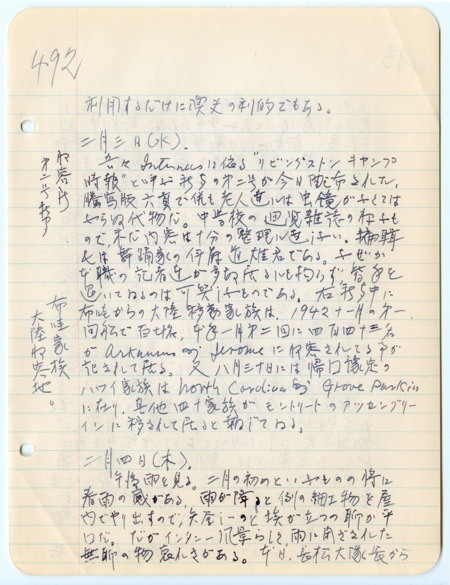 492
利用するだけに現実の利的でもある。
二月三日(水)。
吾々Interneesに依る"リビングストンキャンプ
時報"と云ふ新聞の第二号が今日配布された。
謄写版六頁で俺も老人連には虫鏡がなくては
やらぬ代物だ。中学校の週間雑誌の様なも
ので、未だ内容は十分の整理が
氏は舞踊家の伊府道雄君である。
本職の記者連が多数居るにも拘らず皆手を
退いてゐるのは可笑しなものである。右新聞中に
布哇からの大陸移動家族は、1942十一月の第一
回船で百七名、本年一月第二回に四百四十三名
がArkansas州Jeromeに収容されてゐる事が
記されて居る。又八月三十日には帰国予定の
ハワイ家族はNorth Carolina州Grove Park inn
に在り、其他四十家族がモントリートのアッセンブリー
インに移されて居ると報じてゐる。
収容所
第二号新聞
布哇家族
大陸収容地。
二月四日(木)。
午後雨を見る。二月の初めといふものの将に
春雨の感がある。雨が降ると例の細工物を屋
内でやり出すので、埃が立つの聊か平
口だ。だがインターニー風景らしく雨に閉ざされた
無聊の物哀しさがある。本日、長松大隊長から